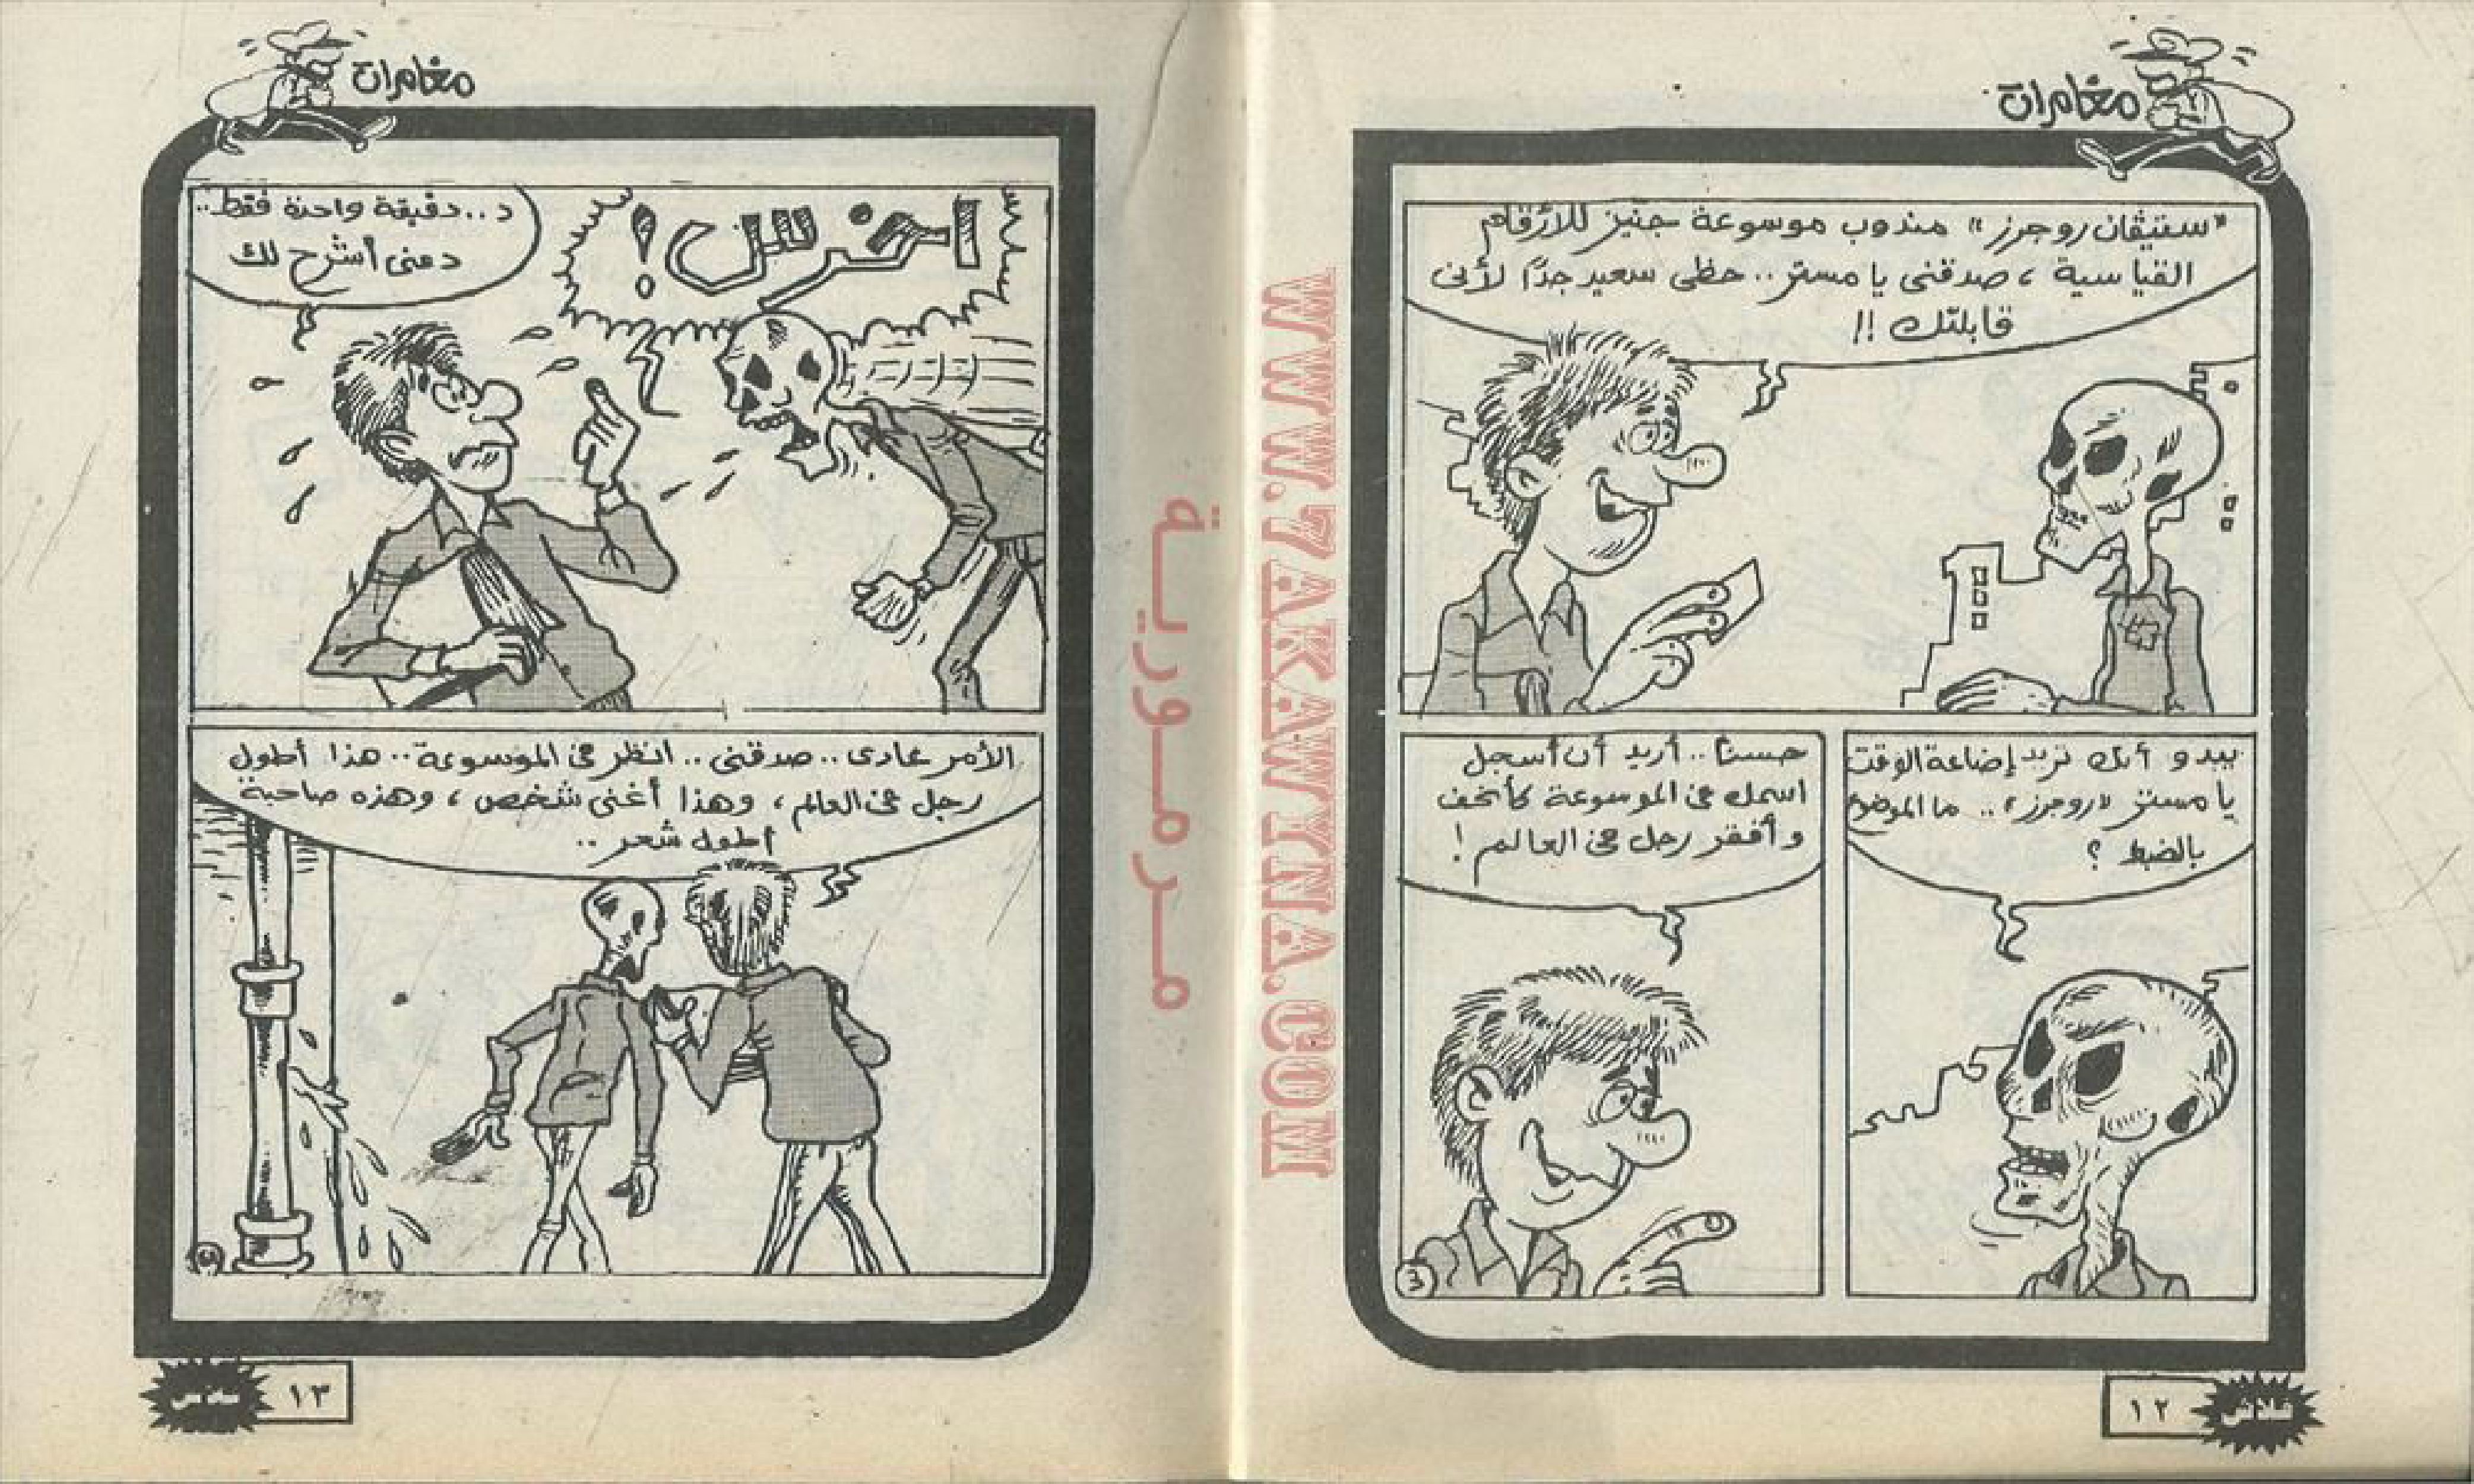 مغامرات
"ستيڤان روجرز" مندوب موسوعة جنيز للأرقام
القياسية ، صدقنى يا مستر .. حظى سعيد جدًا لأنى
قابلتك !!
يبدو أنك تريد إضاعة الوقت
يا مستر "روجرز" .. ما الموضوع
بالضبط ؟
حسنًا .. أريد أن أسجل
اسمك فى الموسوعة كأنحف
وأفقر رجل فى العالم !
3
١٢
فلاش
WWW.7AKAWINA.COM
مرمورية
مغامرات
اخرس !
د .. دقيقة واحدة فقط ..
دعنى أشرح لك
الأمر عادى .. صدقنى .. انظر فى الموسوعة .. هذا أطول
رجل فى العالم ، وهذا أغنى شخص ، وهذه صاحبة
أطول شعر ..
١٣